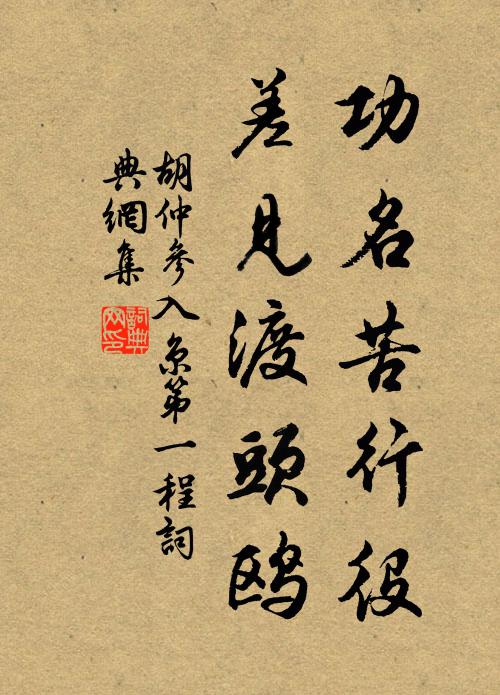 功名苦行役
差見渡頭鷗
胡仲參入京第一程詞
典網集
詞典網印